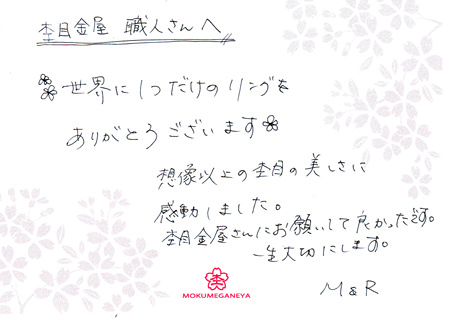 杢目金屋 職人さんへ
世界に1つだけのリングを
ありがとうございます
想像以上の杢目の美しさに
感動しました。
杢目金屋さんにお願いして良かったです。
一生大切にします。
M & R
杢
MOKUMEGANEYA